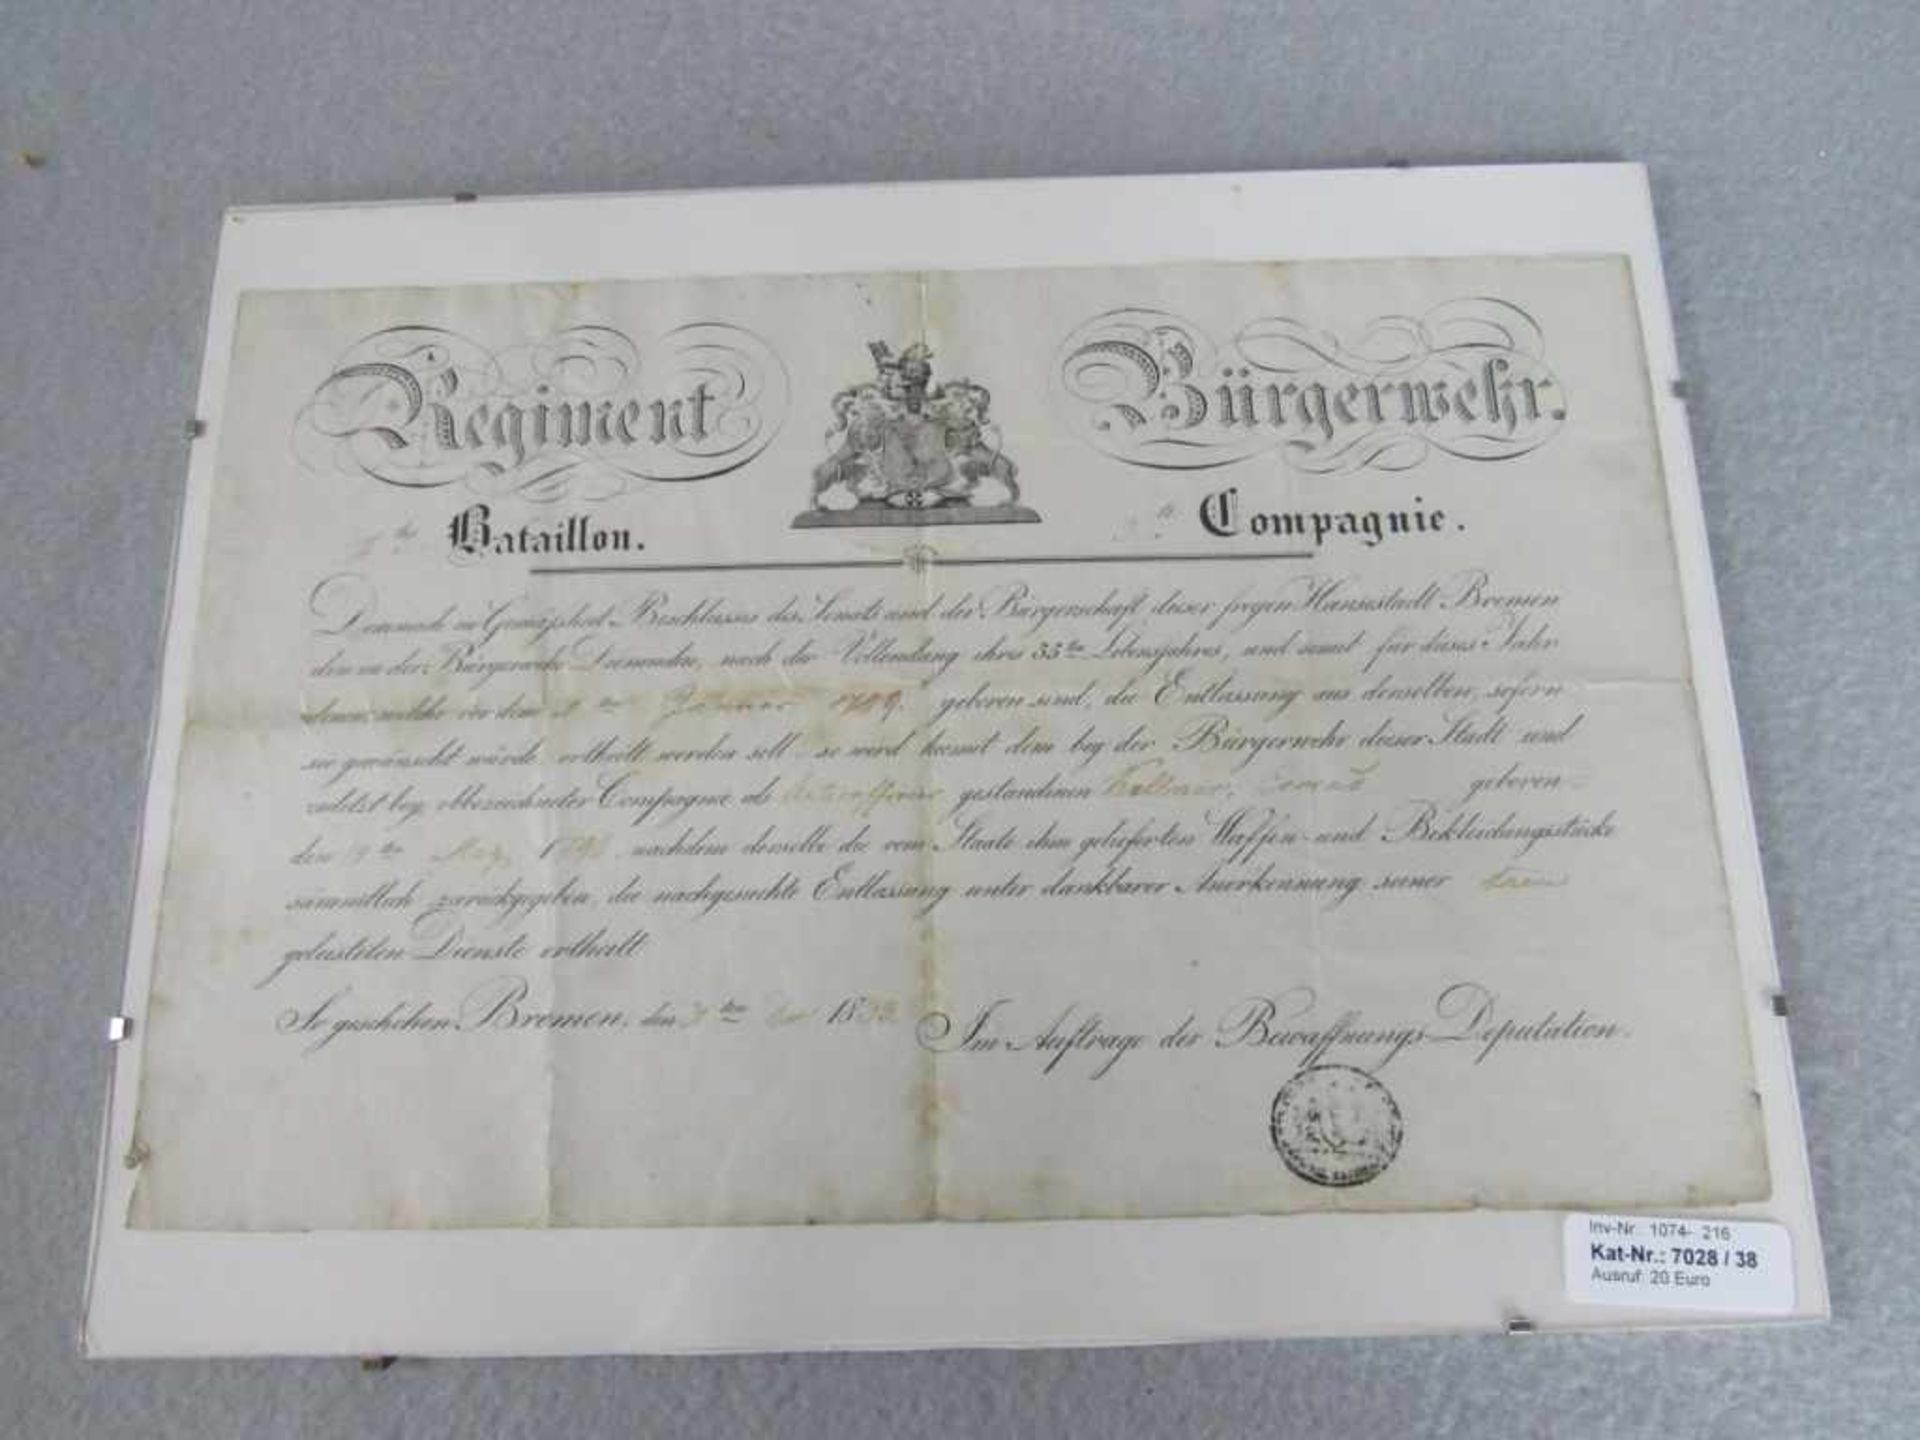 Regiment Bürgerwehr.
Bataillon. Compagnie.
Demnach in Gemäßheit Beschlusses des Senats und der Bürgerschaft dieser freyen Hansestadt Bremen
den in der Bürgerwehr Dienenden, nach der Vollendung ihres 35ten Lebensjahres, und somit für dieses Jahr
denen welche vor dem Januar geboren sind, die Entlassung aus demselben, sofern
sie gewünscht würde, ertheilt werden soll, so wird hiemit dem bey der Bürgerwehr dieser Stadt und
zuletzt bey obbezeichneter Compagnie als Unterofficier gestandenen geboren
den nachdem derselbe die vom Staate ihm gelieferten Waffen- und Bekleidungsstücke
sämmtlich zurückgegeben, die nachgesuchte Entlassung unter dankbarer Anerkennung seiner
geleisteten Dienste ertheilt.
So geschehen Bremen, den 18 Im Auftrage der Bewaffnungs-Deputation.
Inv-Nr. 1074- 216
Kat-Nr.: 7028 / 38
Ausruf: 20 Euro